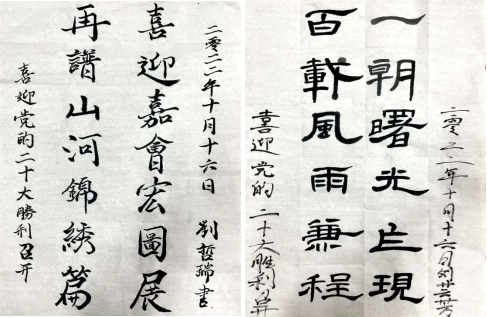 二零二二年十月十六日 劉哲瑞書
喜迎嘉會宏圖展
再譜山河錦綉篇
喜迎党的二十大勝利召开
二零二二年十月十六日
一朝曙光現
百載風雨兼程
喜迎党的二十大胜利召开